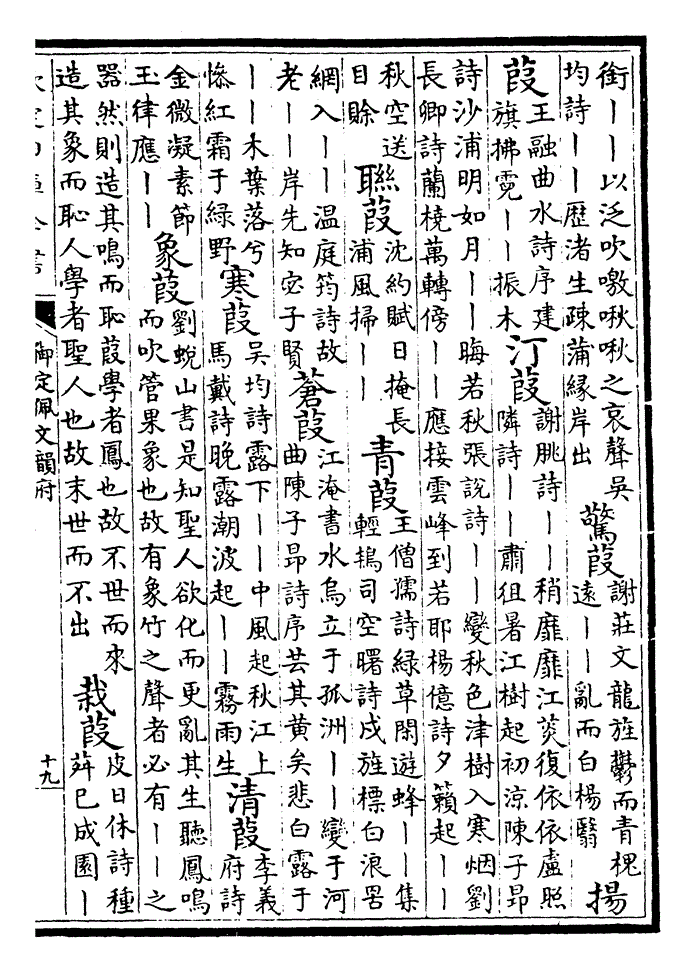 銜——以泛吹噭啾啾之哀聲吳
均詩——歷渚生疎蒲緣岸出
驚葭
謝莊文龍旌鬱而青槐
遠——亂而白楊翳
揚
葭
王融曲水詩序建
旗拂霓——振木
汀葭
謝朓詩——稍靡靡江菼復依依盧照
隣詩——肅徂暑江樹起初涼陳子昻
詩沙浦明如月——晦若秋張說詩——變秋色津樹入寒烟劉
長卿詩蘭橈萬轉傍——應接雲峰到若耶楊億詩夕籟起——
秋空送
目賒
聯葭
沈約賦日掩長
浦風掃——
青葭
王僧孺詩綠草閑遊蜂——集
輕鴇司空曙詩戍旌標白浪罟
網入——溫庭筠詩故
老——岸先知宓子賢
蒼葭
江淹書水鳥立于孤洲——變于河
曲陳子昻詩序芸其黄矣悲白露于
——木葉落兮
慘紅霜于綠野
寒葭
吳均詩露下——中風起秋江上
馬戴詩晚露潮波起——霧雨生
清葭
李義
府詩
金微凝素節
玉律應——
象葭
劉蛻山書是知聖人欲化而更亂其生聽鳳鳴
而吹管果象也故有象竹之聲者必有——之
器然則造其鳴而恥葭學者鳳也故不世而來
造其象而恥人學者聖人也故末世而不出
栽葭
皮日休詩種
葑已成園—
御定佩文韻府
十九